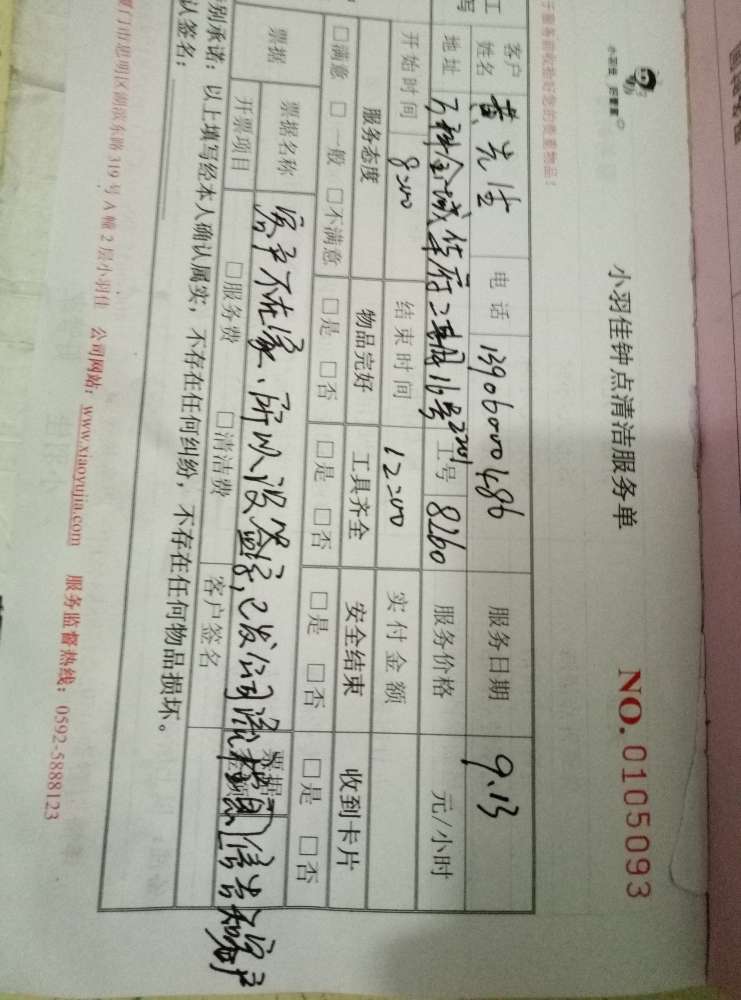 小羽佳钟点清洁服务单
NO. 0105093
客户姓名 黄先生 电话 13906000486 服务日期 9.13
地址 万科金域华府二期16号2201 工号 8260 服务价格 元/小时
开始时间 8:00 结束时间 12:00 实付金额
服务态度 物品完好 工具齐全 安全结束 收到卡片
□满意 □一般 □不满意 □是 □否 □是 □否 □是 □否 □是 □否
票据 票据名称 票据
开票项目 □服务费 □清洁费 客户签名
客户不在家、所以没签字,已发公司流 信告知客户
别承诺:以上填写经本人确认属实,不存在任何纠纷,不存在任何物品损坏。
认签名:
厦门市思明区湖滨东路319号A幢2层小羽佳 公司网站:www.xiaoyujia.com 服务监督热线:0592-5888123